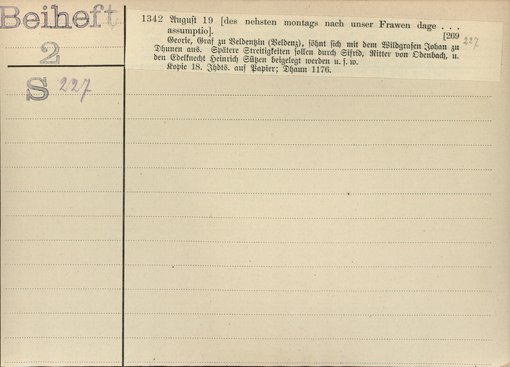 Beiheft
2
S 227
1342 August 19 [des nehsten montags nach unser Frawen dage . . .
assumptio]. [269
227
Georie, Graf zu Veldentzin (Veldenz), söhnt sich mit dem Wildgrafen Johan zu
Dhunen aus. Spätere Streitigkeiten sollen durch Sifrid, Ritter von Odenbach, u.
den Edelknecht Heinrich Sützen beigelegt werden u. s. w.
Kopie 18. Jhdts. auf Papier; Dhaun 1176.